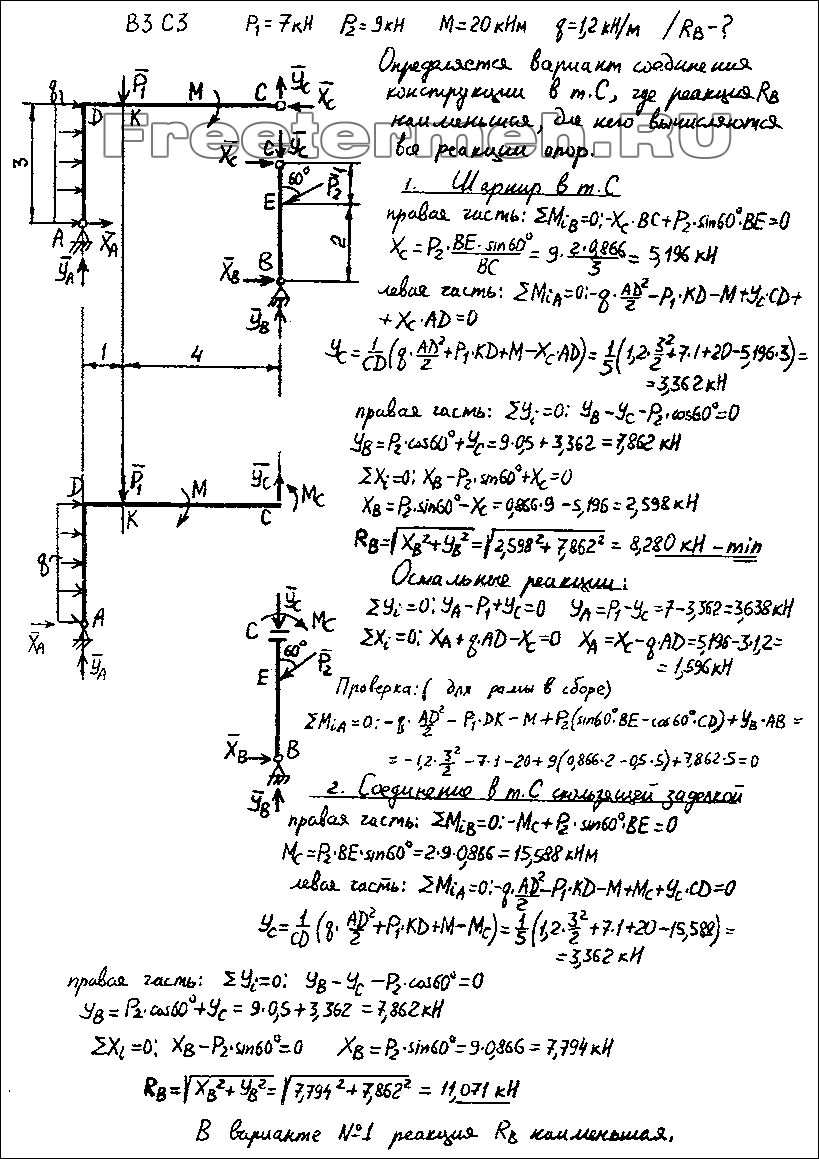 В3 С3 P₁=7кН P₂=9кН M=20кНм q=1,2 кН/м /R_B-?
Определяется вариант соединения
конструкции в т.С, где реакция R_B
наименьшая, для него вычисляются
все реакции опор.
1. Шарнир в т.С
правая часть: ΣM_iB=0; -X_C·BC+P₂·sin60°·BE=0
X_C=P₂·(BE·sin60°)/BC=9·(2·0,866)/3=5,196 кН
левая часть: ΣM_iA=0; -q·AD²/2-P₁·KD-M+Y_C·CD+
+X_C·AD=0
Y_C=1/CD(q·AD²/2+P₁·KD+M-X_C·AD)=1/5(1,2·3²/2+7·1+20-5,196·3)=
=3,362 кН
правая часть: ΣY_i=0; Y_B-Y_C-P₂·cos60°=0
Y_B=P₂·cos60°+Y_C=9·0,5+3,362=7,862 кН
ΣX_i=0; X_B-P₂·sin60°+X_C=0
X_B=P₂·sin60°-X_C=0,866·9-5,196=2,598 кН
R_B=√(X_B²+Y_B²)=√(2,598²+7,862²)=8,280 кН-min
Остальные реакции:
ΣY_i=0; Y_A-P₁+Y_C=0 Y_A=P₁-Y_C=7-3,362=3,638кН
ΣX_i=0; X_A+q·AD-X_C=0 X_A=X_C-q·AD=5,196-3·1,2=
=1,596 кН
Проверка: (для рамы в сборе)
ΣM_iA=0; -q·AD²/2-P₁·DK-M+P₂(sin60°·BE-cos60°·CD)+Y_B·AB=
=-1,2·3²/2-7·1-20+9(0,866·2-0,5·5)+7,862·5=0
2. Соединение в т.С скользящей заделкой
правая часть: ΣM_iB=0; -M_C+P₂·sin60°·BE=0
M_C=P₂·BE·sin60°=2·9·0,866=15,588 кНм
левая часть: ΣM_iA=0; -q·AD²/2-P₁·KD-M+M_C+Y_C·CD=0
Y_C=1/CD(q·AD²/2+P₁·KD+M-M_C)=1/5(1,2·3²/2+7·1+20-15,588)=
=3,362 кН
правая часть: ΣY_i=0; Y_B-Y_C-P₂·cos60°=0
Y_B=P₂·cos60°+Y_C=9·0,5+3,362=7,862кН
ΣX_i=0; X_B-P₂·sin60°=0 X_B=P₂·sin60°=9·0,866=7,794 кН
R_B=√(X_B²+Y_B²)=√(7,794²+7,862²)=11,071 кН
В варианте №1 реакция R_B наименьшая.
q P₁ M C Y_C X_C
D K
Freetermeh.RU
3
X_C C Y_C
60° P₂ 1
E
A X_A
2
Y_A
X_B B
Y_B
1 4
P₁ Y_C
D M M_C
K C
q
A
X_A Y_A
Y_C
C M_C
60° P₂
E
X_B B
Y_B